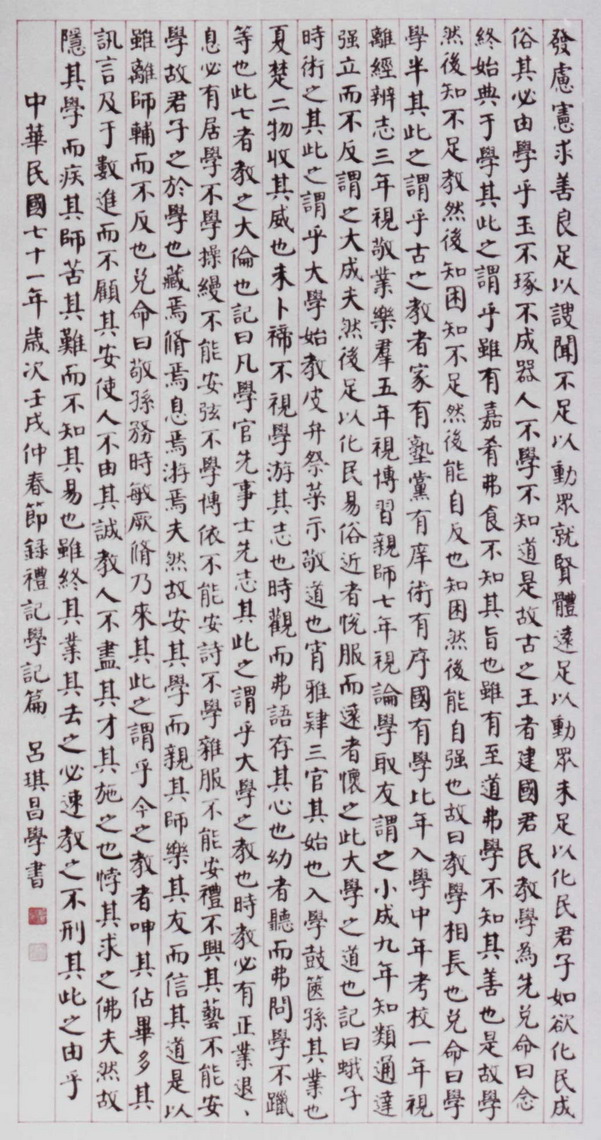 發慮憲求善良足以謏聞不足以動眾就賢體遠足以動眾未足以化民君子如欲化民成
俗其必由學乎玉不琢不成器人不學不知道是故古之王者建國君民教學為先兌命曰念
終始典于學其此之謂乎雖有嘉肴弗食不知其旨也雖有至道弗學不知其善也是故學
然後知不足教然後知困知不足然後能自反也知困然後能自强也故曰教學相長也兌命曰學
學半其此之謂乎古之教者家有塾黨有庠術有序國有學比年入學中年考校一年視
離經辨志三年視敬業樂羣五年視博習親師七年視論學取友謂之小成九年知類通達
强立而不反謂之大成夫然後足以化民易俗近者悅服而遠者懷之此大學之道也記曰蛾子
時術之其此之謂乎大學始教皮弁祭菜示敬道也宵雅肄三官其始也入學鼓篋孫其業也
夏楚二物收其威也未卜禘不視學游其志也時觀而弗語存其心也幼者聽而弗問學不躐
等也此七者教之大倫也記曰凡學官先事士先志其此之謂乎大學之教也時教必有正業退、
息必有居學不學操縵不能安弦不學博依不能安詩不學雜服不能安禮不興其藝不能安
學故君子之於學也藏焉脩焉息焉游焉夫然故安其學而親其師樂其友而信其道是以
雖離師輔而不反也兌命曰敬孫務時敏厥脩乃來其此之謂乎今之教者呻其佔畢多其
訊言及于數進而不顧其安使人不由其誠教人不盡其才其施之也悖其求之佛夫然故
隱其學而疾其師苦其難而不知其易也雖終其業其去之必速教之不刑其此之由乎
中華民國七十一年歲次壬戌仲春節録禮記學記篇 呂琪昌學書